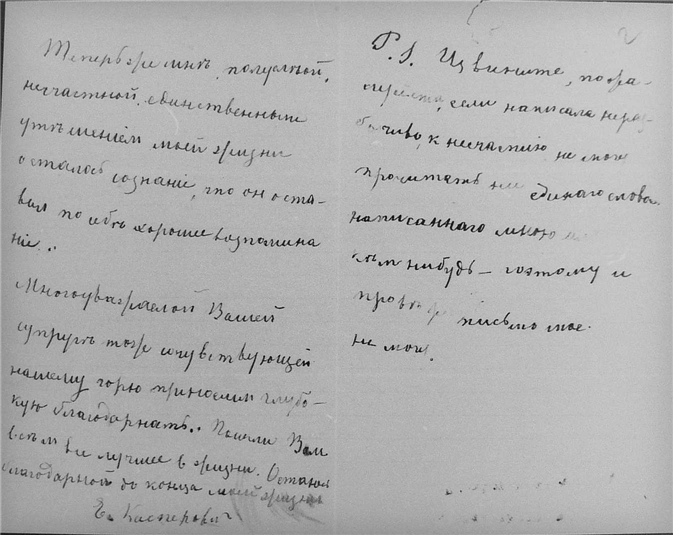 Теперь же мнѣ, полуслѣпой,
несчастной, единственнымъ
утѣшеніем моей жизни
осталось сознаніе, что он оста-
вил по себѣ хорошее воспомина
ніе..
Многоуважаемой Вашей
супругѣ тоже сочувствующей
нашему горю приносим глубо-
кую благодарность.. Вам
всѣм все лучшее в жизни. Остаюсь
благодарной до конца моей жизни
Ек Касперович
2
P.S. Извините, пожа-
луйста, если написала нераз
борчиво, к несчастію не могу
прочитать ни единаго слова
написаннаго мною или
кѣм нибудь — поэтому и
провѣр письмо мое
не могу.